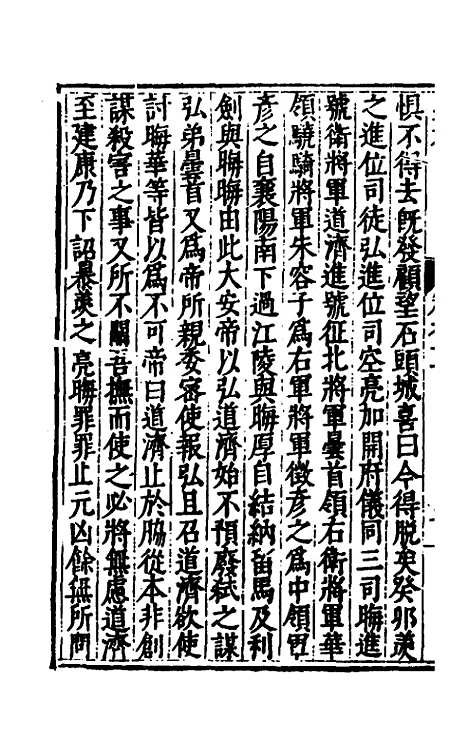 惧不得去旣發顧望石頭城喜曰今得脫矣癸夘羨
之進位司徒弘進位司空亮加開府儀同三司晦進
號衛將軍道濟進號征北將軍曇首領右衛將軍華
領驍騎將軍朱容子爲右軍將軍徵彥之爲中領軍
彥之自襄陽南下過江陵與晦厚自結納留馬及利
劍與晦晦由此大安帝以弘道濟始不預廢弑之謀
弘弟曇首又爲帝所親委密使報弘且召道濟欲使
討晦華等皆以爲不可帝曰道濟止於脇從本非創
謀殺害之事又所不關吾撫而使之必將無慮道濟
至建康乃下詔暴羨之亮晦罪罪止元凶餘無所問